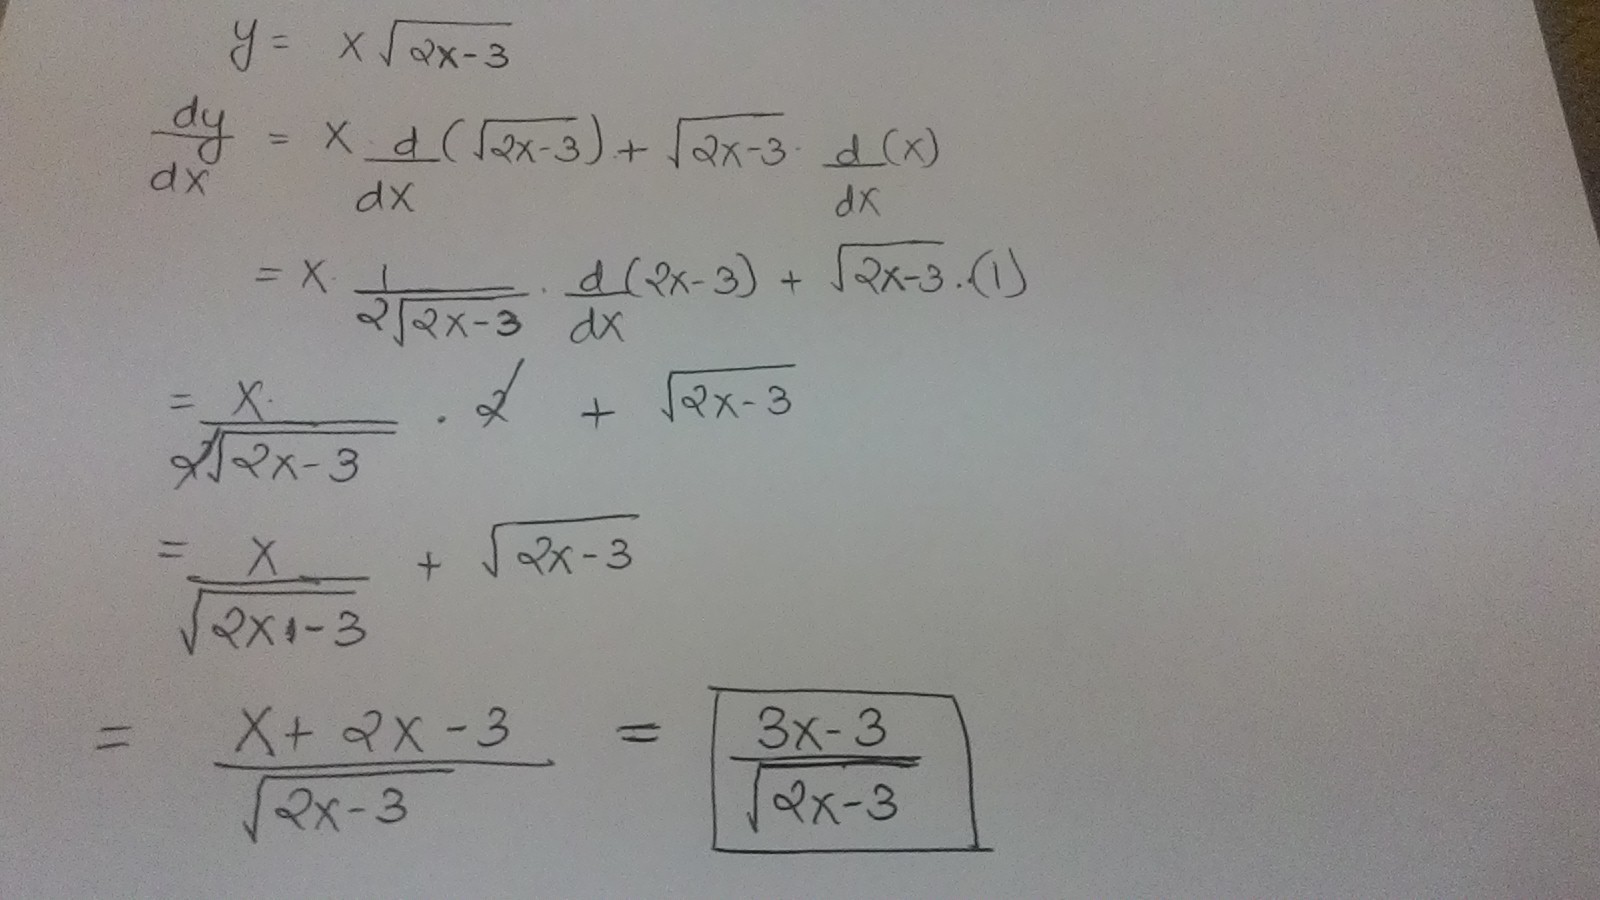 y = x√(2x-3)
dy/dx = x · d/dx (√(2x-3)) + √(2x-3) · d/dx (x)
= x · 1/(2√(2x-3)) · d/dx (2x-3) + √(2x-3) · (1)
= x/(2√(2x-3)) · 2 + √(2x-3)
= x/√(2x-3) + √(2x-3)
= (x + 2x - 3)/√(2x-3) = (3x-3)/√(2x-3)